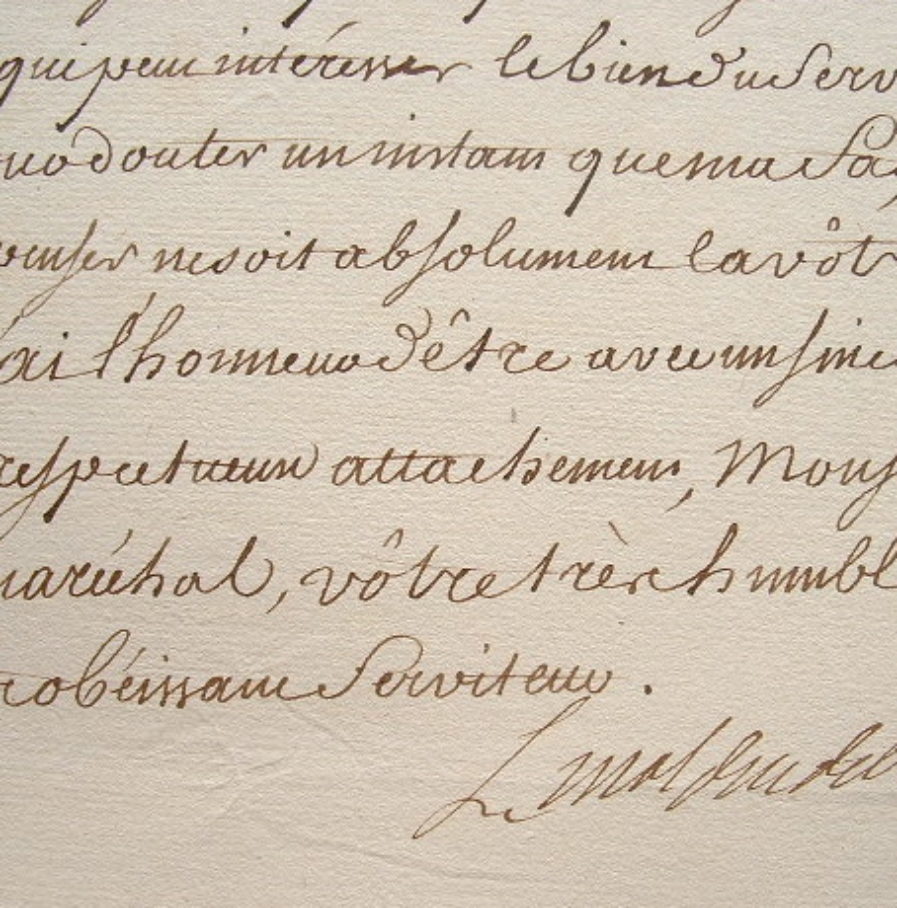 qui peut intéresser le bien du Serv
douter un instant que ma Fa
penser ne soit absolument la vôt
ai l'honneur d'être avec un sinc
respectueux attachement, Mons
maréchal, vôtre très humbl
obéissant Serviteur.